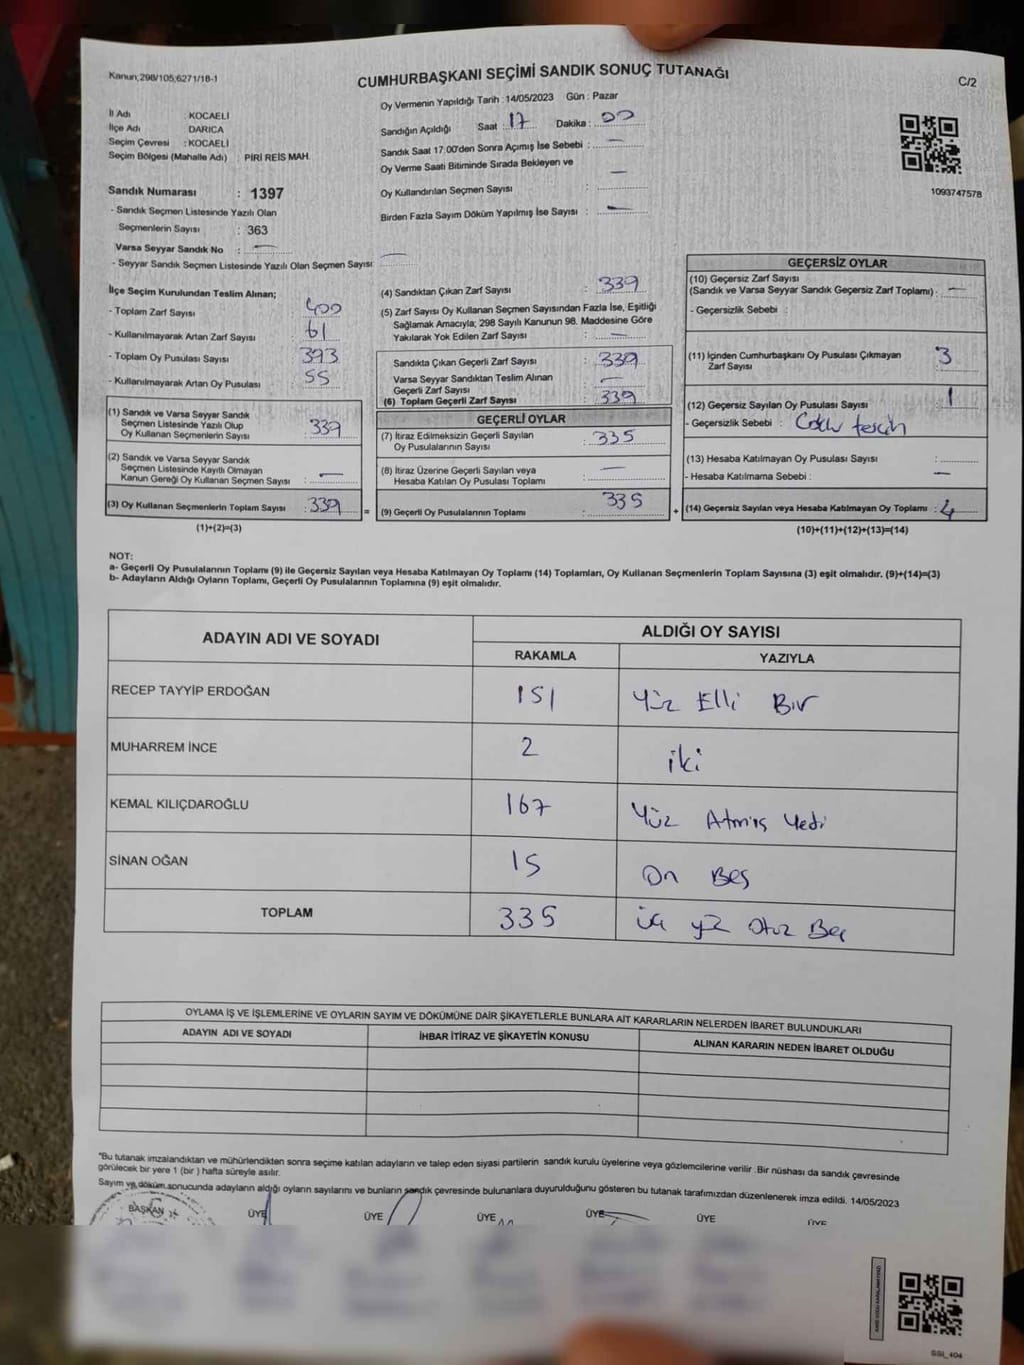 Kanun;298/105,6271/18-1
CUMHURBAŞKANI SEÇİMİ SANDIK SONUÇ TUTANAĞI
C/2
İl Adı KOCAELİ
İlçe Adı DARICA
Seçim Çevresi : KOCAELİ
Seçim Bölgesi (Mahalle Adı) : PİRİ REİS MAH.
Sandık Numarası : 1397
- Sandık Seçmen Listesinde Yazılı Olan
Seçmenlerin Sayısı : 363
Varsa Seyyar Sandık No : —
- Seyyar Sandık Seçmen Listesinde Yazılı Olan Seçmen Sayısı: —
Oy Vermenin Yapıldığı Tarih : 14/05/2023 Gün : Pazar
Sandığın Açıldığı Saat : 17 Dakika : 00
Sandık Saat 17:00'den Sonra Açımış İse Sebebi : —
Oy Verme Saati Bitiminde Sırada Bekleyen ve
Oy Kullandırılan Seçmen Sayısı : —
Birden Fazla Sayım Döküm Yapılmış İse Sayısı : —
1093747578
İlçe Seçim Kurulundan Teslim Alınan;
- Toplam Zarf Sayısı : 400
- Kullanılmayarak Artan Zarf Sayısı : 61
- Toplam Oy Pusulası Sayısı : 393
- Kullanılmayarak Artan Oy Pusulası : 55
(1) Sandık ve Varsa Seyyar Sandık
Seçmen Listesinde Yazılı Olup
Oy Kullanan Seçmenlerin Sayısı : 339
(2) Sandık ve Varsa Seyyar Sandık
Seçmen Listesinde Kayıtlı Olmayan
Kanun Gereği Oy Kullanan Seçmen Sayısı : —
(3) Oy Kullanan Seçmenlerin Toplam Sayısı : 339 =
(1)+(2)=(3)
(4) Sandıktan Çıkan Zarf Sayısı : 339
(5) Zarf Sayısı Oy Kullanan Seçmen Sayısından Fazla İse, Eşitliği
Sağlamak Amacıyla; 298 Sayılı Kanunun 98. Maddesine Göre
Yakılarak Yok Edilen Zarf Sayısı : —
Sandıkta Çıkan Geçerli Zarf Sayısı : 339
Varsa Seyyar Sandıktan Teslim Alınan
Geçerli Zarf Sayısı : —
(6) Toplam Geçerli Zarf Sayısı : 339
GEÇERLİ OYLAR
(7) İtiraz Edilmeksizin Geçerli Sayılan
Oy Pusulalarının Sayısı : 335
(8) İtiraz Üzerine Geçerli Sayılan veya
Hesaba Katılan Oy Pusulası Toplamı : —
(9) Geçerli Oy Pusulalarının Toplamı : 335 +
GEÇERSİZ OYLAR
(10) Geçersiz Zarf Sayısı
(Sandık ve Varsa Seyyar Sandık Geçersiz Zarf Toplamı) : —
- Geçersizlik Sebebi :
(11) İçinden Cumhurbaşkanı Oy Pusulası Çıkmayan
Zarf Sayısı : 3
(12) Geçersiz Sayılan Oy Pusulası Sayısı : 1
- Geçersizlik Sebebi : Çoklu tercih
(13) Hesaba Katılmayan Oy Pusulası Sayısı :
- Hesaba Katılmama Sebebi : —
(14) Geçersiz Sayılan veya Hesaba Katılmayan Oy Toplamı : 4
(10)+(11)+(12)+(13)=(14)
NOT:
a- Geçerli Oy Pusulalarının Toplamı (9) ile Geçersiz Sayılan veya Hesaba Katılmayan Oy Toplamı (14) Toplamları, Oy Kullanan Seçmenlerin Toplam Sayısına (3) eşit olmalıdır. (9)+(14)=(3)
b- Adayların Aldığı Oyların Toplamı, Geçerli Oy Pusulalarının Toplamına (9) eşit olmalıdır.
ADAYIN ADI VE SOYADI ALDIĞI OY SAYISI
RAKAMLA YAZIYLA
RECEP TAYYİP ERDOĞAN 151 Yüz Elli Bir
MUHARREM İNCE 2 iki
KEMAL KILIÇDAROĞLU 167 Yüz Atmış Yedi
SİNAN OĞAN 15 On Beş
TOPLAM 335 üç yüz Otuz Beş
OYLAMA İŞ VE İŞLEMLERİNE VE OYLARIN SAYIM VE DÖKÜMÜNE DAİR ŞİKAYETLERLE BUNLARA AİT KARARLARIN NELERDEN İBARET BULUNDUKLARI
ADAYIN ADI VE SOYADI İHBAR İTİRAZ VE ŞİKAYETİN KONUSU ALINAN KARARIN NEDEN İBARET OLDUĞU
"Bu tutanak imzalandıktan ve mühürlendikten sonra seçime katılan adayların ve talep eden siyasi partilerin sandık kurulu üyelerine veya gözlemcilerine verilir .Bir nüshası da sandık çevresinde
görülecek bir yere 1 (bir ) hafta süreyle asılır.
Sayım ve döküm sonucunda adayların aldığı oyların sayılarını ve bunların sandık çevresinde bulunanlara duyurulduğunu gösteren bu tutanak tarafımızdan düzenlenerek imza edildi. 14/05/2023
BAŞKAN ÜYE ÜYE ÜYE ÜYE ÜYE ÜYE
SSI_404